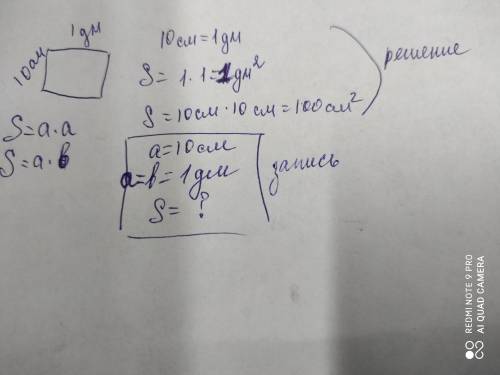 1 дм
10 см
S=a·a
S=a·b
10 см = 1 дм
S = 1·1=1 дм²
S = 10 см · 10 см = 100 см²
решение
a = 10 см
a=b= 1 дм
S= ?
запись
REDMI NOTE 9 PRO
AI QUAD CAMERA